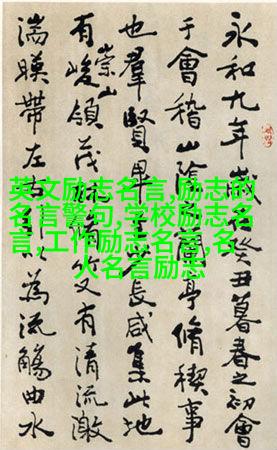 永和九年歲在癸丑暮春之初會
于會稽山陰之蘭亭脩稧事
也羣賢畢至少長咸集此地
有崇山峻領茂林脩竹又有清流激
湍暎帶左右以為流觴曲水
英文励志名言,励志的
名言警句,学校励志名
言,工作励志名言,名
人名言励志